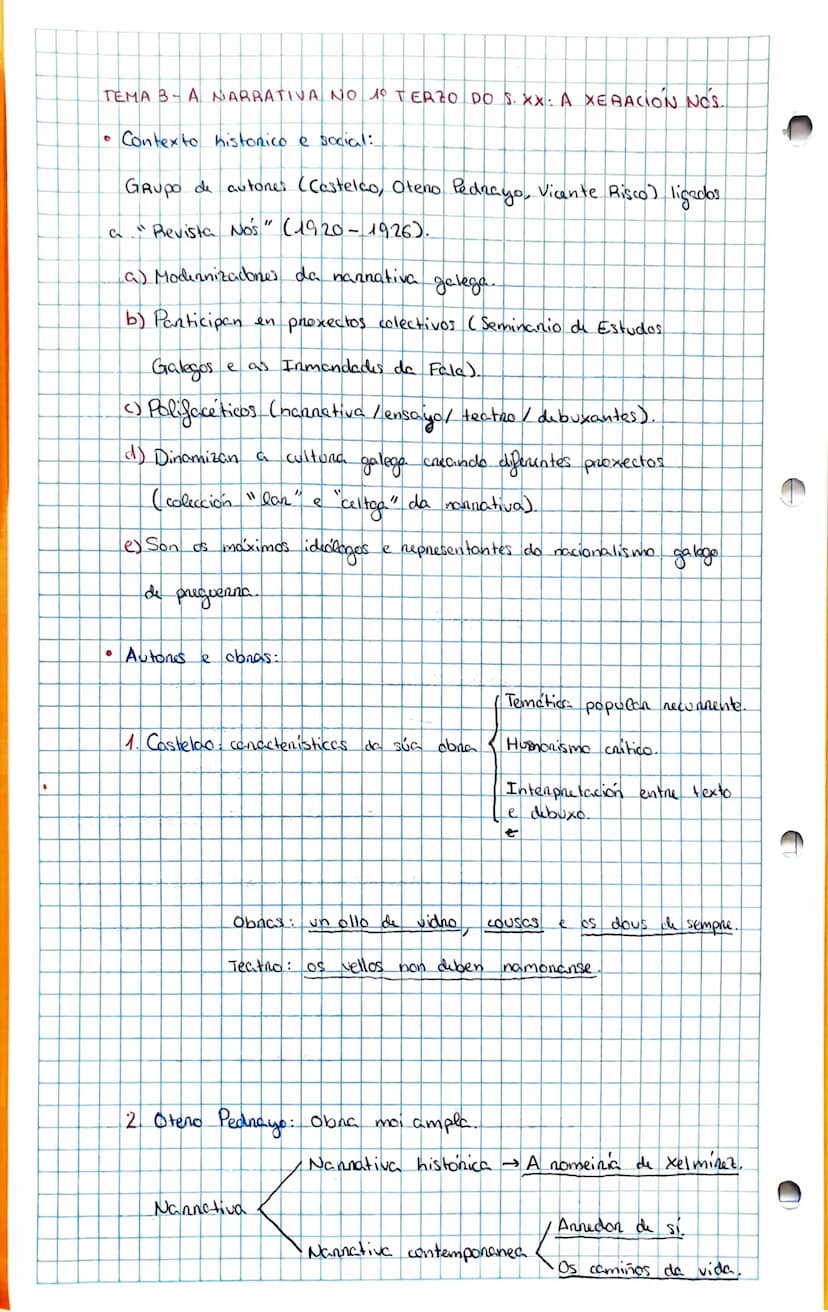 TEMA 3 - A NARRATIVA NO 1º TERZO DO S. XX: A XERACIÓN NÓS.
• Contexto historico e social:
GRUPO de autores (Castelao, Otero Pedrayo, Vicente Risco) ligados
a "Revista Nós" (1920 - 1926).
a) Modernizadores da narrativa galega.
b) Participan en proxectos colectivos (Seminario de Estudos
Galegos e as Irmandades da Fala).
c) Polifacéticos (narrativa / ensayo / teatro / debuxantes).
d) Dinamizan a cultura galega creando diferentes proxectos
(colección "lar" e "celtga" da narrativa).
e) Son os máximos ideólogos e representantes do nacionalismo galego
de preguerra.
• Autores e obras:
1. Castelao: características da súa obra
Temática popular recurrente.
Humorismo crítico.
Interprelación entre texto
e debuxo.
e
Obras: un ollo de vidro, cousas e os dous de sempre.
Teatro: os vellos non deben namorarse.
2. Otero Pedrayo: Obra moi ampla.
Narrativa histórica → A romeiría de Xelmírez.
Narrativa
Arredor de sí.
Narrativa contemporanea
Os camiños da vida.